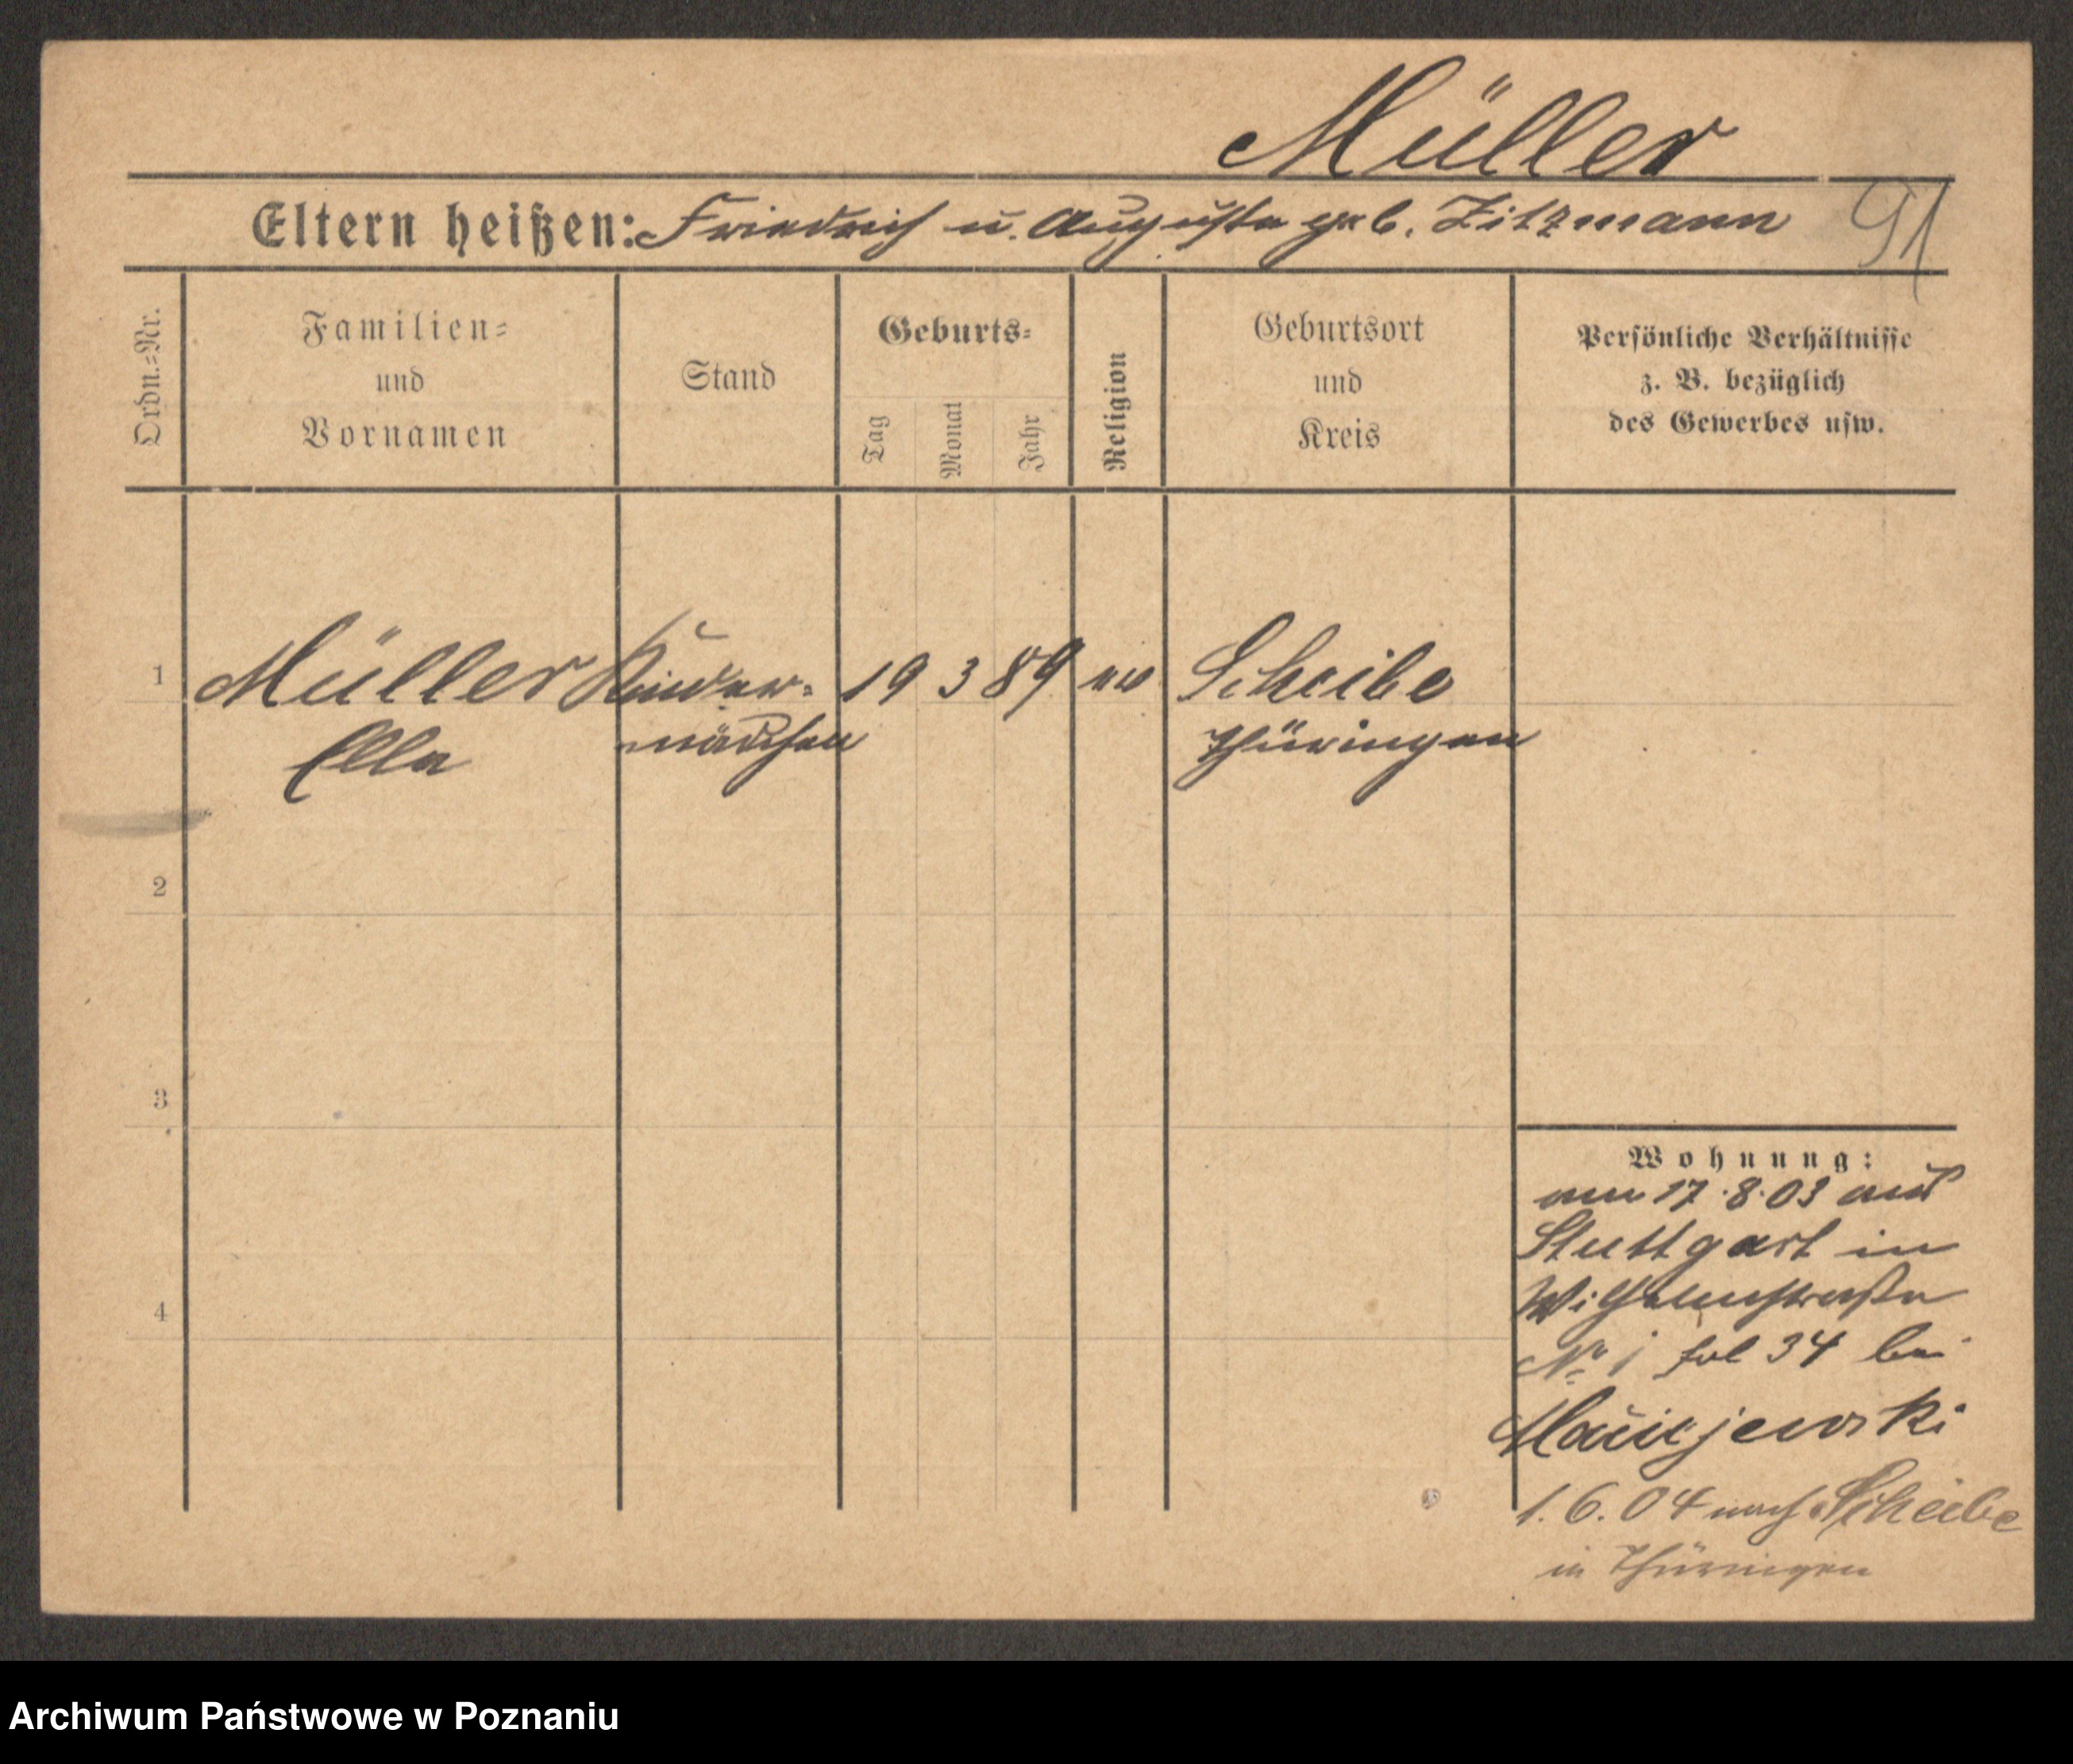 Müller
Eltern heißen: Friedrich u. Auguste geb. Zitzmann
91
Ordn.=Nr.
Familien=
und
Vornamen
Stand
Geburts=
Tag
Monat
Jahr
Religion
Geburtsort
und
Kreis
Persönliche Verhältnisse
z. B. bezüglich
des Gewerbes usw.
1 Müller Kinder= 19 3 89 ev Scheibe
Ella mädchen Thüringen
2
3
4
Wohnung:
am 17.8.03 aus
Stuttgart in
Wilhelmstraße
No 1 fol 34 bei
Maciejewski
1.6.04 nach Scheibe
in Thüringen
Archiwum Państwowe w Poznaniu